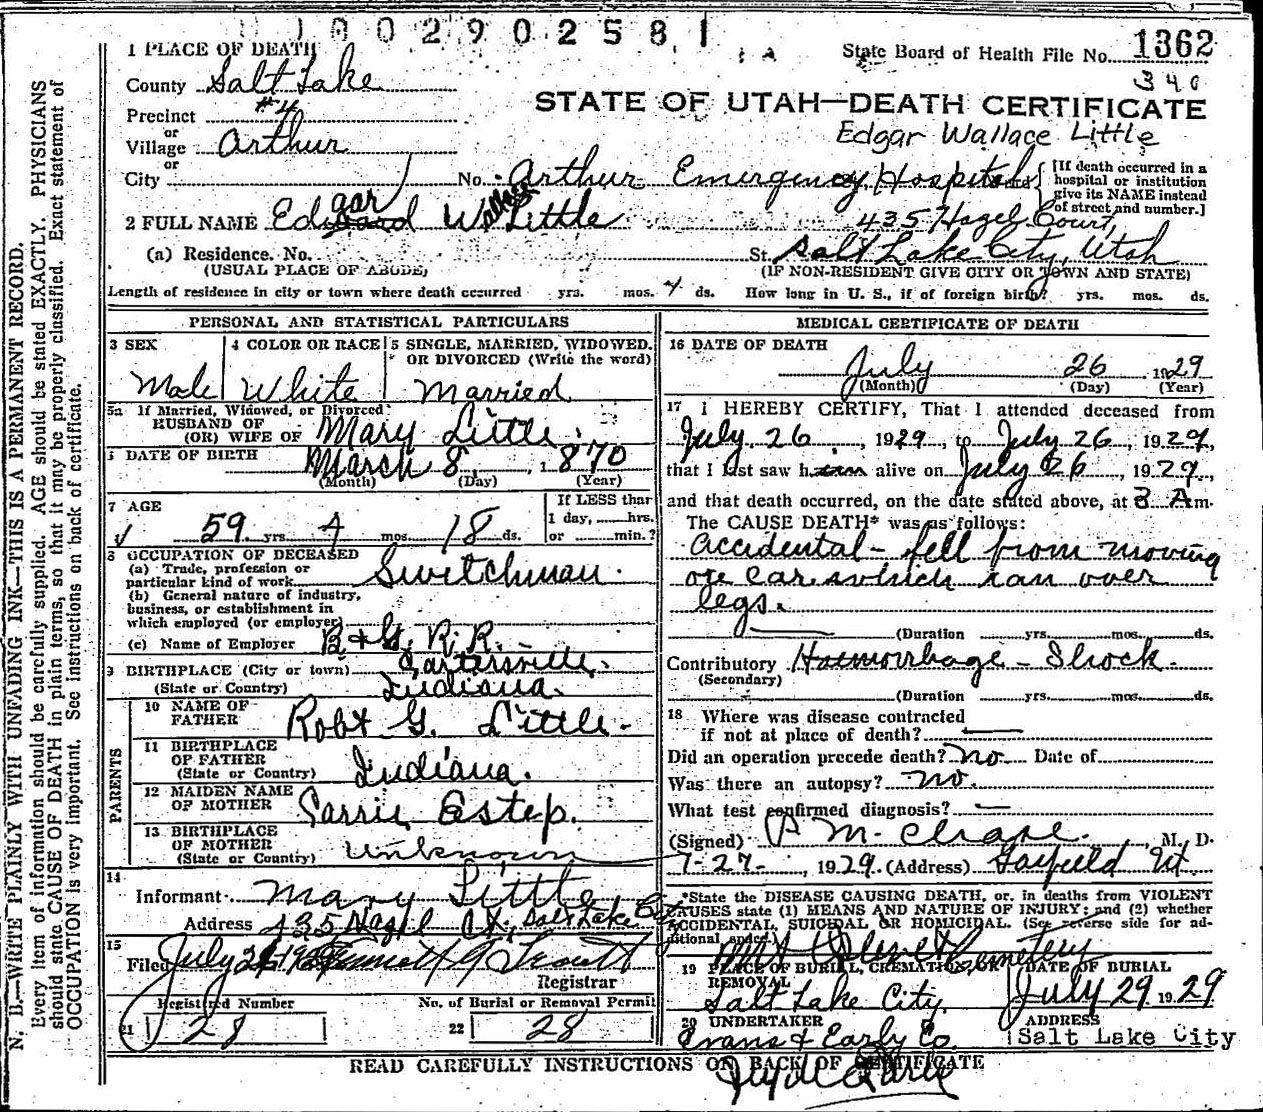 1002902581
1 PLACE OF DEATH
State Board of Health File No. 1362
County Salt Lake
340
Precinct #4
STATE OF UTAH—DEATH CERTIFICATE
or
Edgar Wallace Little
Village Arthur
or
City No. Arthur Emergency Hospital
[If death occurred in a hospital or institution give its NAME instead of street and number.]
2 FULL NAME Edgar Wallace Little
435 Hazel Court,
(a) Residence. No. St. Salt Lake City, Utah
(USUAL PLACE OF ABODE) (IF NON-RESIDENT GIVE CITY OR TOWN AND STATE)
Length of residence in city or town where death occurred yrs. mos. 4 ds. How long in U. S., if of foreign birth? yrs. mos. ds.
PERSONAL AND STATISTICAL PARTICULARS
3 SEX
Male
4 COLOR OR RACE
White
5 SINGLE, MARRIED, WIDOWED, OR DIVORCED (Write the word)
Married
5a If Married, Widowed, or Divorced
HUSBAND OF
(OR) WIFE OF Mary Little.
6 DATE OF BIRTH March 8, 1870
(Month) (Day) (Year)
7 AGE
59 yrs. 4 mos. 18 ds.
If LESS than
1 day, hrs.
or min.?
8 OCCUPATION OF DECEASED
(a) Trade, profession or
particular kind of work Switchman.
(b) General nature of industry,
business, or establishment in
which employed (or employer)
(c) Name of Employer B & G. R. R.
9 BIRTHPLACE (City or town) Cartersville.
(State or Country) Indiana.
PARENTS
10 NAME OF
FATHER Robt G. Little.
11 BIRTHPLACE
OF FATHER
(State or Country) Indiana.
12 MAIDEN NAME
OF MOTHER Carrie Estep.
13 BIRTHPLACE
OF MOTHER
(State or Country) Unknown
14
Informant Mary Little
Address 435 Hazel Ct, Salt Lake City
15
Filed July 1929 Registrar
Registered Number
21 28
No. of Burial or Removal Permit
22 28
MEDICAL CERTIFICATE OF DEATH
16 DATE OF DEATH
July 26 1929
(Month) (Day) (Year)
17 I HEREBY CERTIFY, That I attended deceased from
July 26, 1929, to July 26, 1929,
that I last saw him alive on July 26, 1929,
and that death occurred, on the date stated above, at 3 A m.
The CAUSE DEATH* was as follows:
Accidental - fell from moving
ore car which ran over
legs.
(Duration yrs. mos. ds.
Contributory Haemorrhage - Shock.
(Secondary)
(Duration yrs. mos. ds.
18 Where was disease contracted
if not at place of death?
Did an operation precede death? no Date of
Was there an autopsy? no.
What test confirmed diagnosis? —
(Signed) M. M. D.
7-27-, 1929. (Address) Garfield Ut.
*State the DISEASE CAUSING DEATH, or, in deaths from VIOLENT
CAUSES state (1) MEANS AND NATURE OF INJURY; and (2) whether
ACCIDENTAL, SUICIDAL OR HOMICIDAL. (See reverse side for additional space.)
Mt Olivet Cemetery
19 PLACE OF BURIAL, CREMATION, OR REMOVAL
Salt Lake City,
DATE OF BURIAL
July 29 1929
20 UNDERTAKER
Evans & Early Co.
ADDRESS
Salt Lake City
READ CAREFULLY INSTRUCTIONS ON BACK OF CERTIFICATE
N. B.—WRITE PLAINLY WITH UNFADING INK—THIS IS A PERMANENT RECORD.
Every item of information should be carefully supplied. AGE should be stated EXACTLY. PHYSICIANS
should state CAUSE OF DEATH in plain terms, so that it may be properly classified. Exact statement of
OCCUPATION is very important. See instructions on back of certificate.